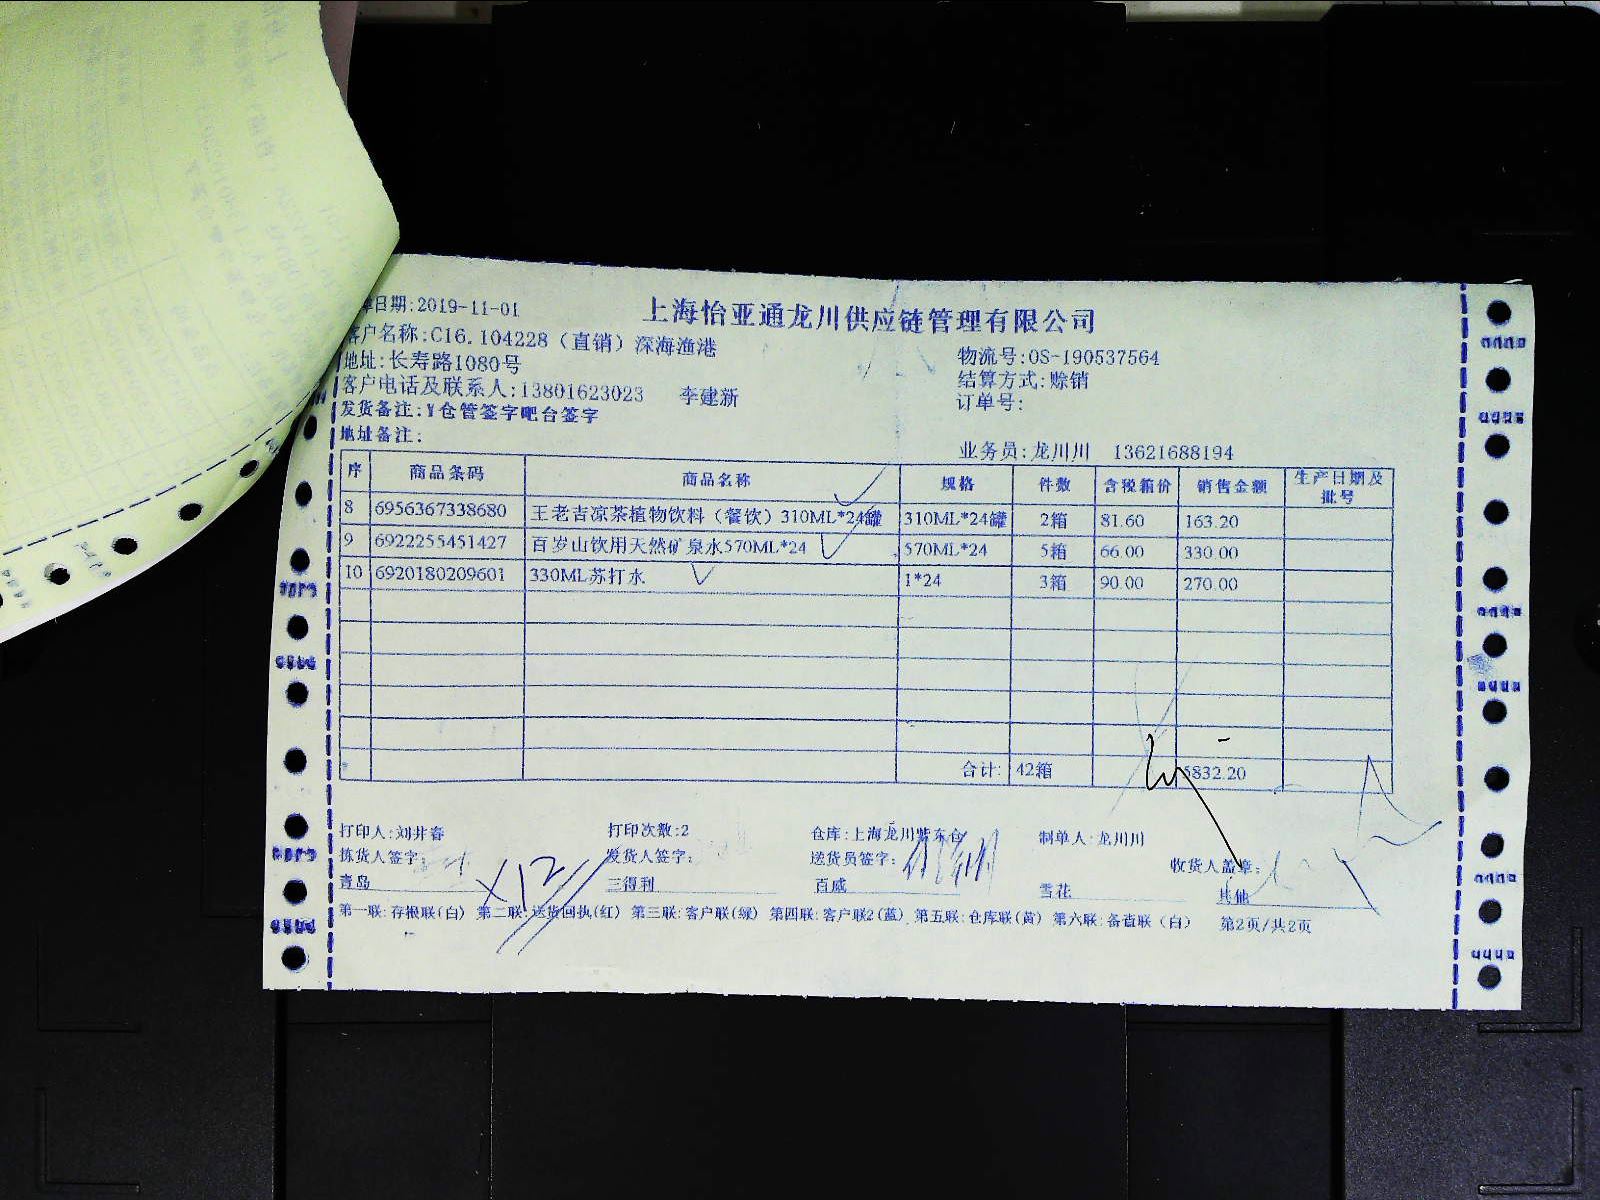 日期:2019-11-01
上海怡亚通龙川供应链管理有限公司
客户名称:C16.104228（直销）深海渔港
物流号:OS-190537564
地址:长寿路1080号
结算方式:赊销
客户电话及联系人:13801623023 李建新
订单号:
发货备注:Y仓管签字吧台签字
地址备注:
业务员:龙川川 13621688194
序 商品条码 商品名称 规格 件数 含税箱价 销售金额 生产日期及批号
8 6956367338680 王老吉凉茶植物饮料（餐饮）310ML*24罐 310ML*24罐 2箱 81.60 163.20
9 6922255451427 百岁山饮用天然矿泉水570ML*24 570ML*24 5箱 66.00 330.00
10 6920180209601 330ML苏打水 1*24 3箱 90.00 270.00
合计: 42箱 5832.20
打印人:刘井春 打印次数:2 仓库:上海龙川浦东仓 制单人:龙川川
拣货人签字: 发货人签字: 送货员签字: 收货人盖章:
青岛 三得利 百威 雪花 其他
第一联:存根联(白) 第二联:送货回执(红) 第三联:客户联(绿) 第四联:客户联2(蓝) 第五联:仓库联(黄) 第六联:备查联（白） 第2页/共2页